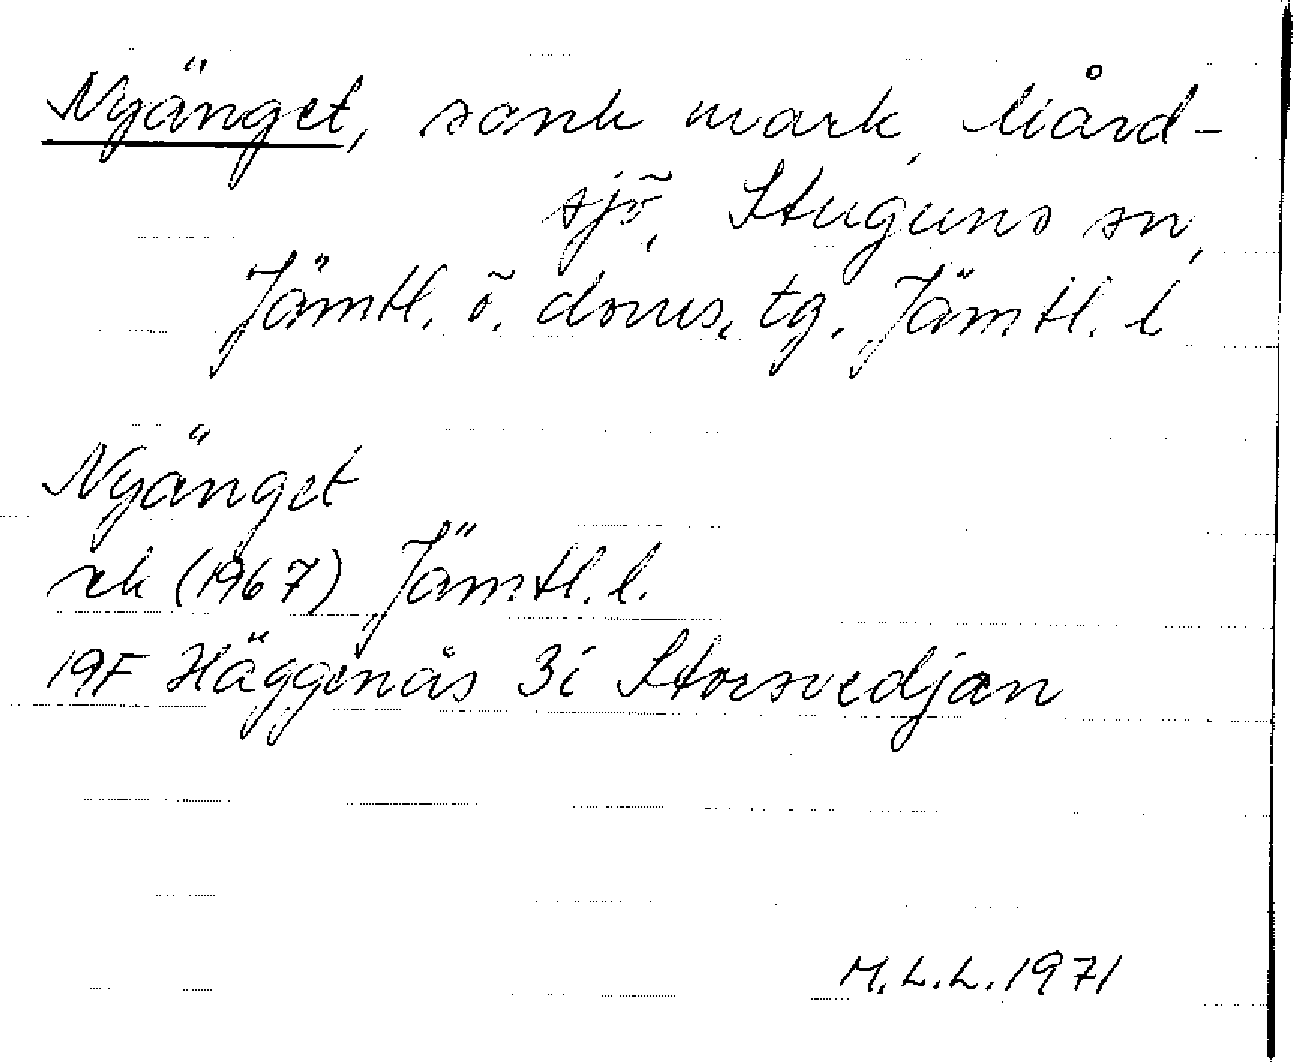 Nyänget, sank mark, Mård-
sjö, Stuguns sn,
Jämtl. ö. doms. tg. Jämtl. l
Nyänget
rek (1967) Jämtl. l.
19F Häggenås 3i Storsvedjan
M.L.L. 1971